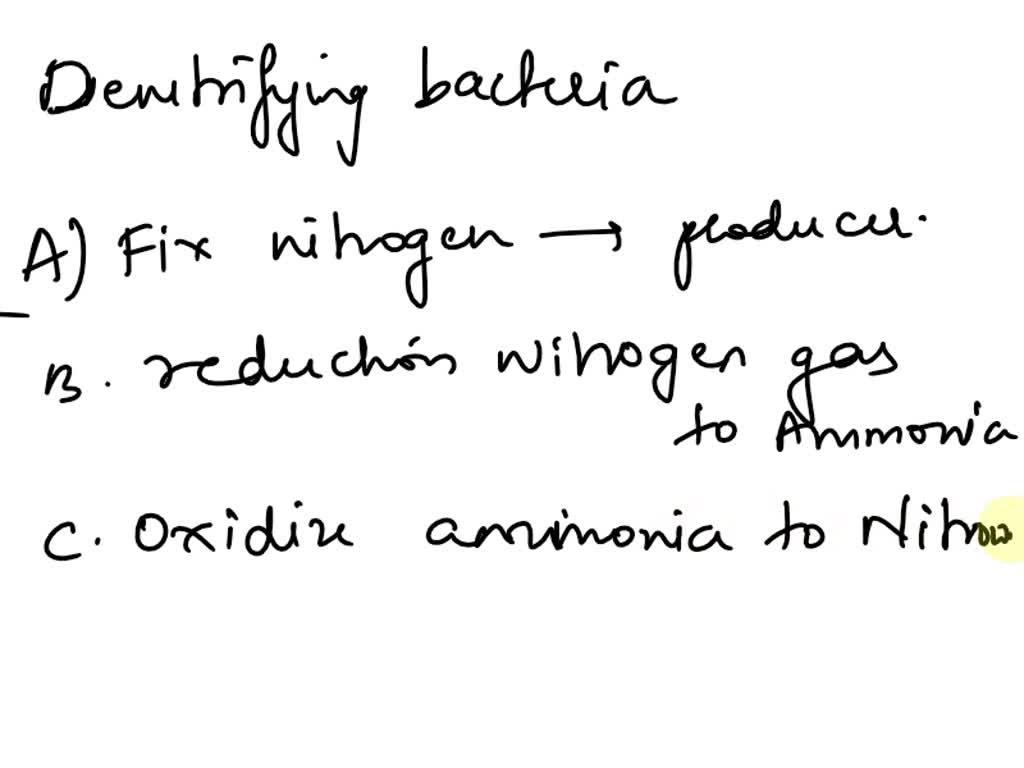 Denitrifying bacteria
A) Fix nitrogen → producer.
B. reduction Nitrogen gas
to Ammonia
C. Oxidize ammonia to